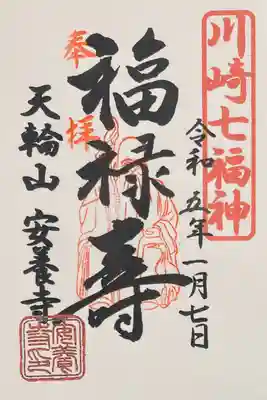 川崎七福神
令和五年一月七日
奉拝
福禄寿
天輪山 安養寺
安養寺印